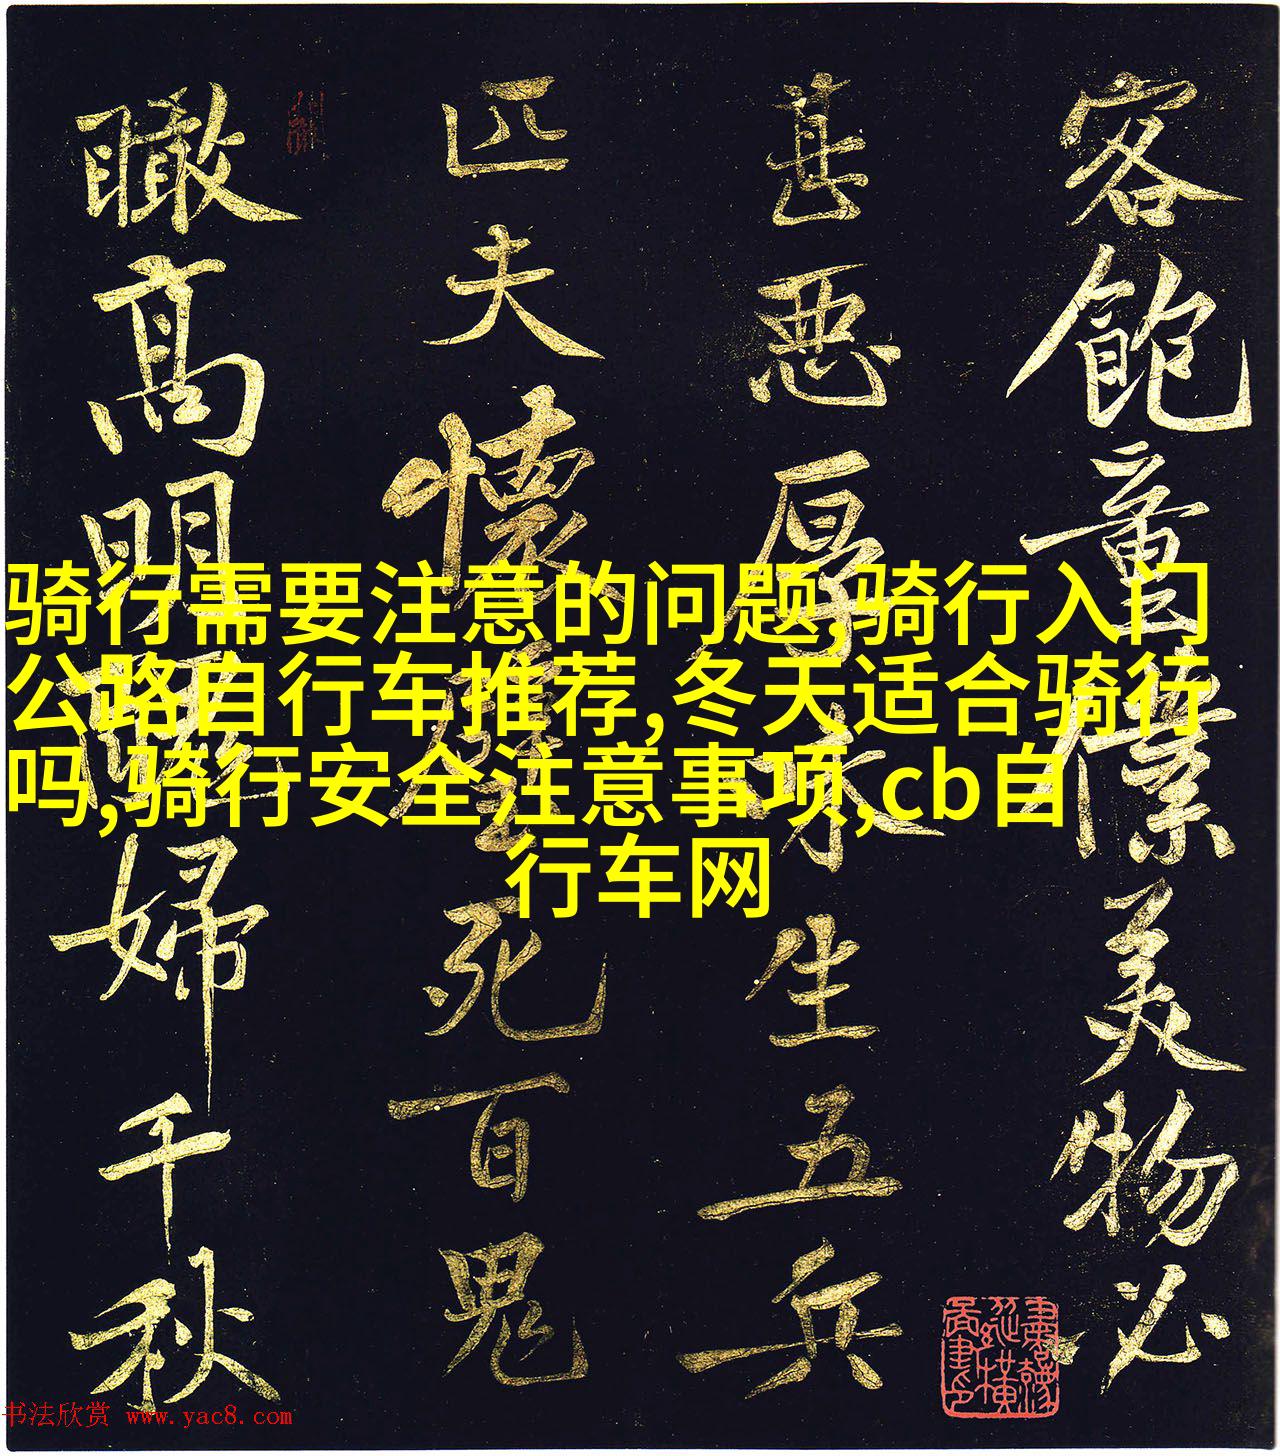 客飽童僕美物必
甚惡厚味生五兵
匹夫懷璧死百鬼
瞰高明醜婦千秋
骑行需要注意的问题,骑行入门
公路自行车推荐,冬天适合骑行
吗,骑行安全注意事项,cb自
行车网
书法欣赏 www.yac8.com